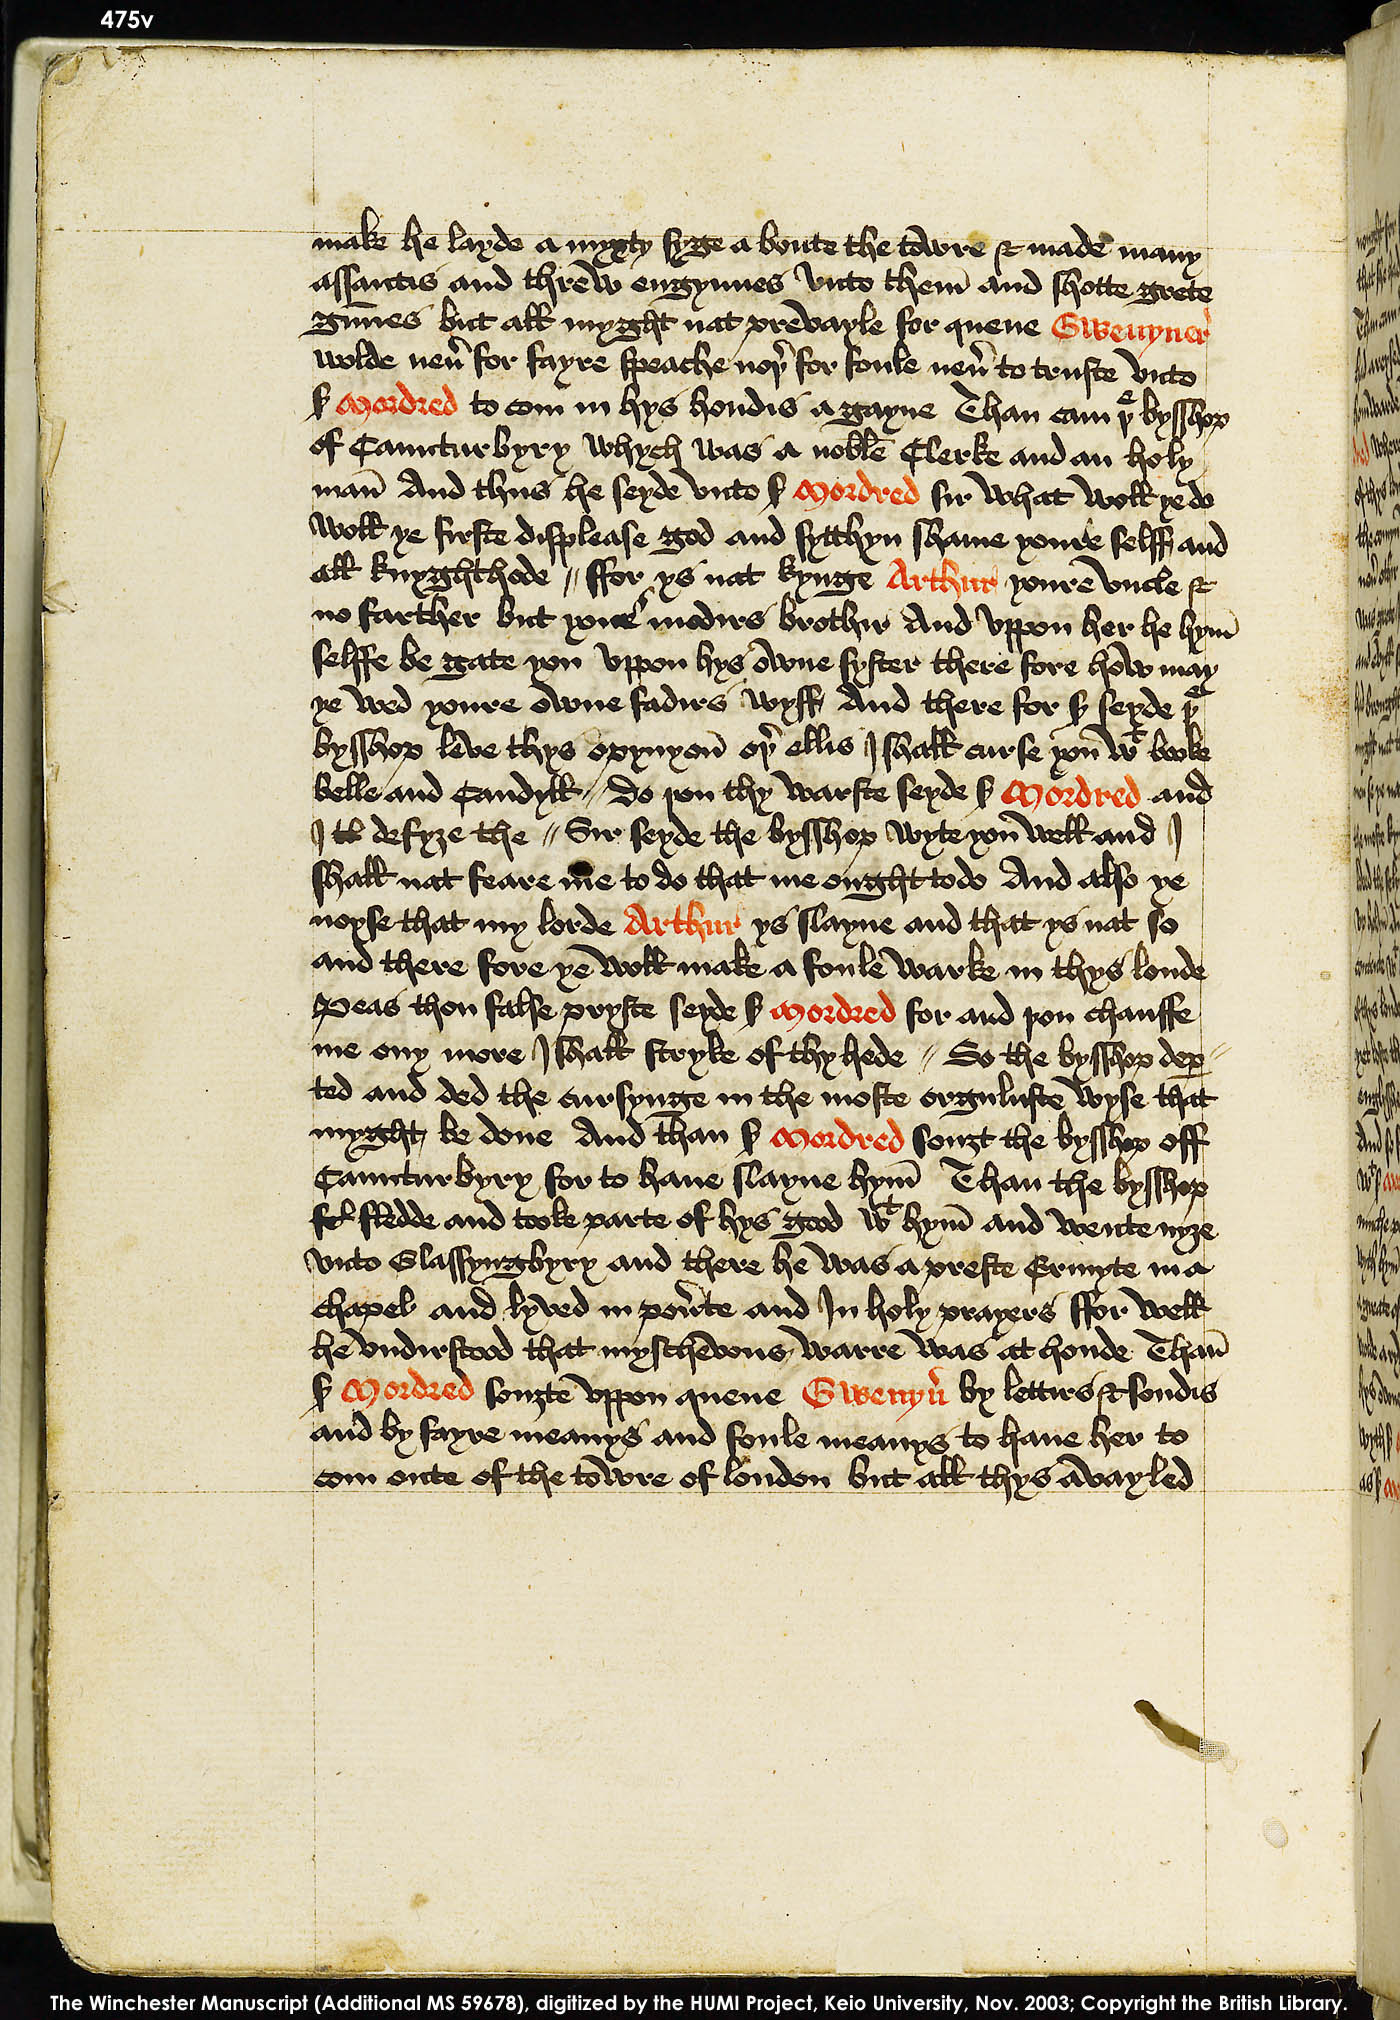 475v
make he layde a myȝty syge a boute the towre & made many
assautis and threw engynnes vnto them̄ and shotte grete
gūnes but all myght nat prevayle for quene Gwenyuer̉
wolde neủ for fayre speache noþ̉ for foule neủ to truste vnto
ẜ Mordred to com in hys hondis a gayne Than cam þͤ bysshop
of Caunturbyry whych was a noble Clerke and an holy
man̄ And thus he seyde vnto ẜ Mordred sir what woll ye do
woll ye firste displease god and sytthyn shame youre selff and
all knyghthode // ffor ys nat kynge Arthur youre vncle &
no farther but youreˢ modirs brothir And vppon her he hym̄
selffe be gate you vppon hys owne syster there fore how may
ye wed youre owne fadirs wyff And there for ẜ seyde þͤ
bysshop leve thys opynyon̄ oþ̉ ellis I shall curse you wᵗ booke
belle and Candyll // do þou thy warste seyde ẜ Mordred and
I defyȝe the // Sir seyde the bysshop wyte you well and I
shall nat feare me to do that me ought to do And also ye
noyse that my lorde Arthur ys slayne and that ys nat so
and there fore ye woll make a foule warke in thys londe
Peas thou false pryste seyde ẜ Mordred for and þou chauffe
me ony more I shall stryke of thy hede // So the bysshop deꝑ //
ted and ded the cursynge in the moste orgulusté wyse that
myght be done And than ẜ Mordred souȝt the bysshop off
Caunturbyry for to haue slayne hym̄ Than the bysshop
fledde and tooke parte of hys good wᵗ hym̄ and wente nyȝe
vnto Glassyngbyry and there he was a preste Ermyte in a
chapel and lyved in poủte and In holy prayers ffor well
he vndirstood that myschevous warre was at honde Than̄
ẜ Mordred souȝte vppon quene Gwenyủ by lettirs & sondis
and by fayre meanys and foule meanys to haue her to
com oute of the towre of london but all thys avayled
The Winchester Manuscript (Additional MS 59678), digitized by the HUMI Project, Keio University, Nov. 2003; Copyright the British Library.